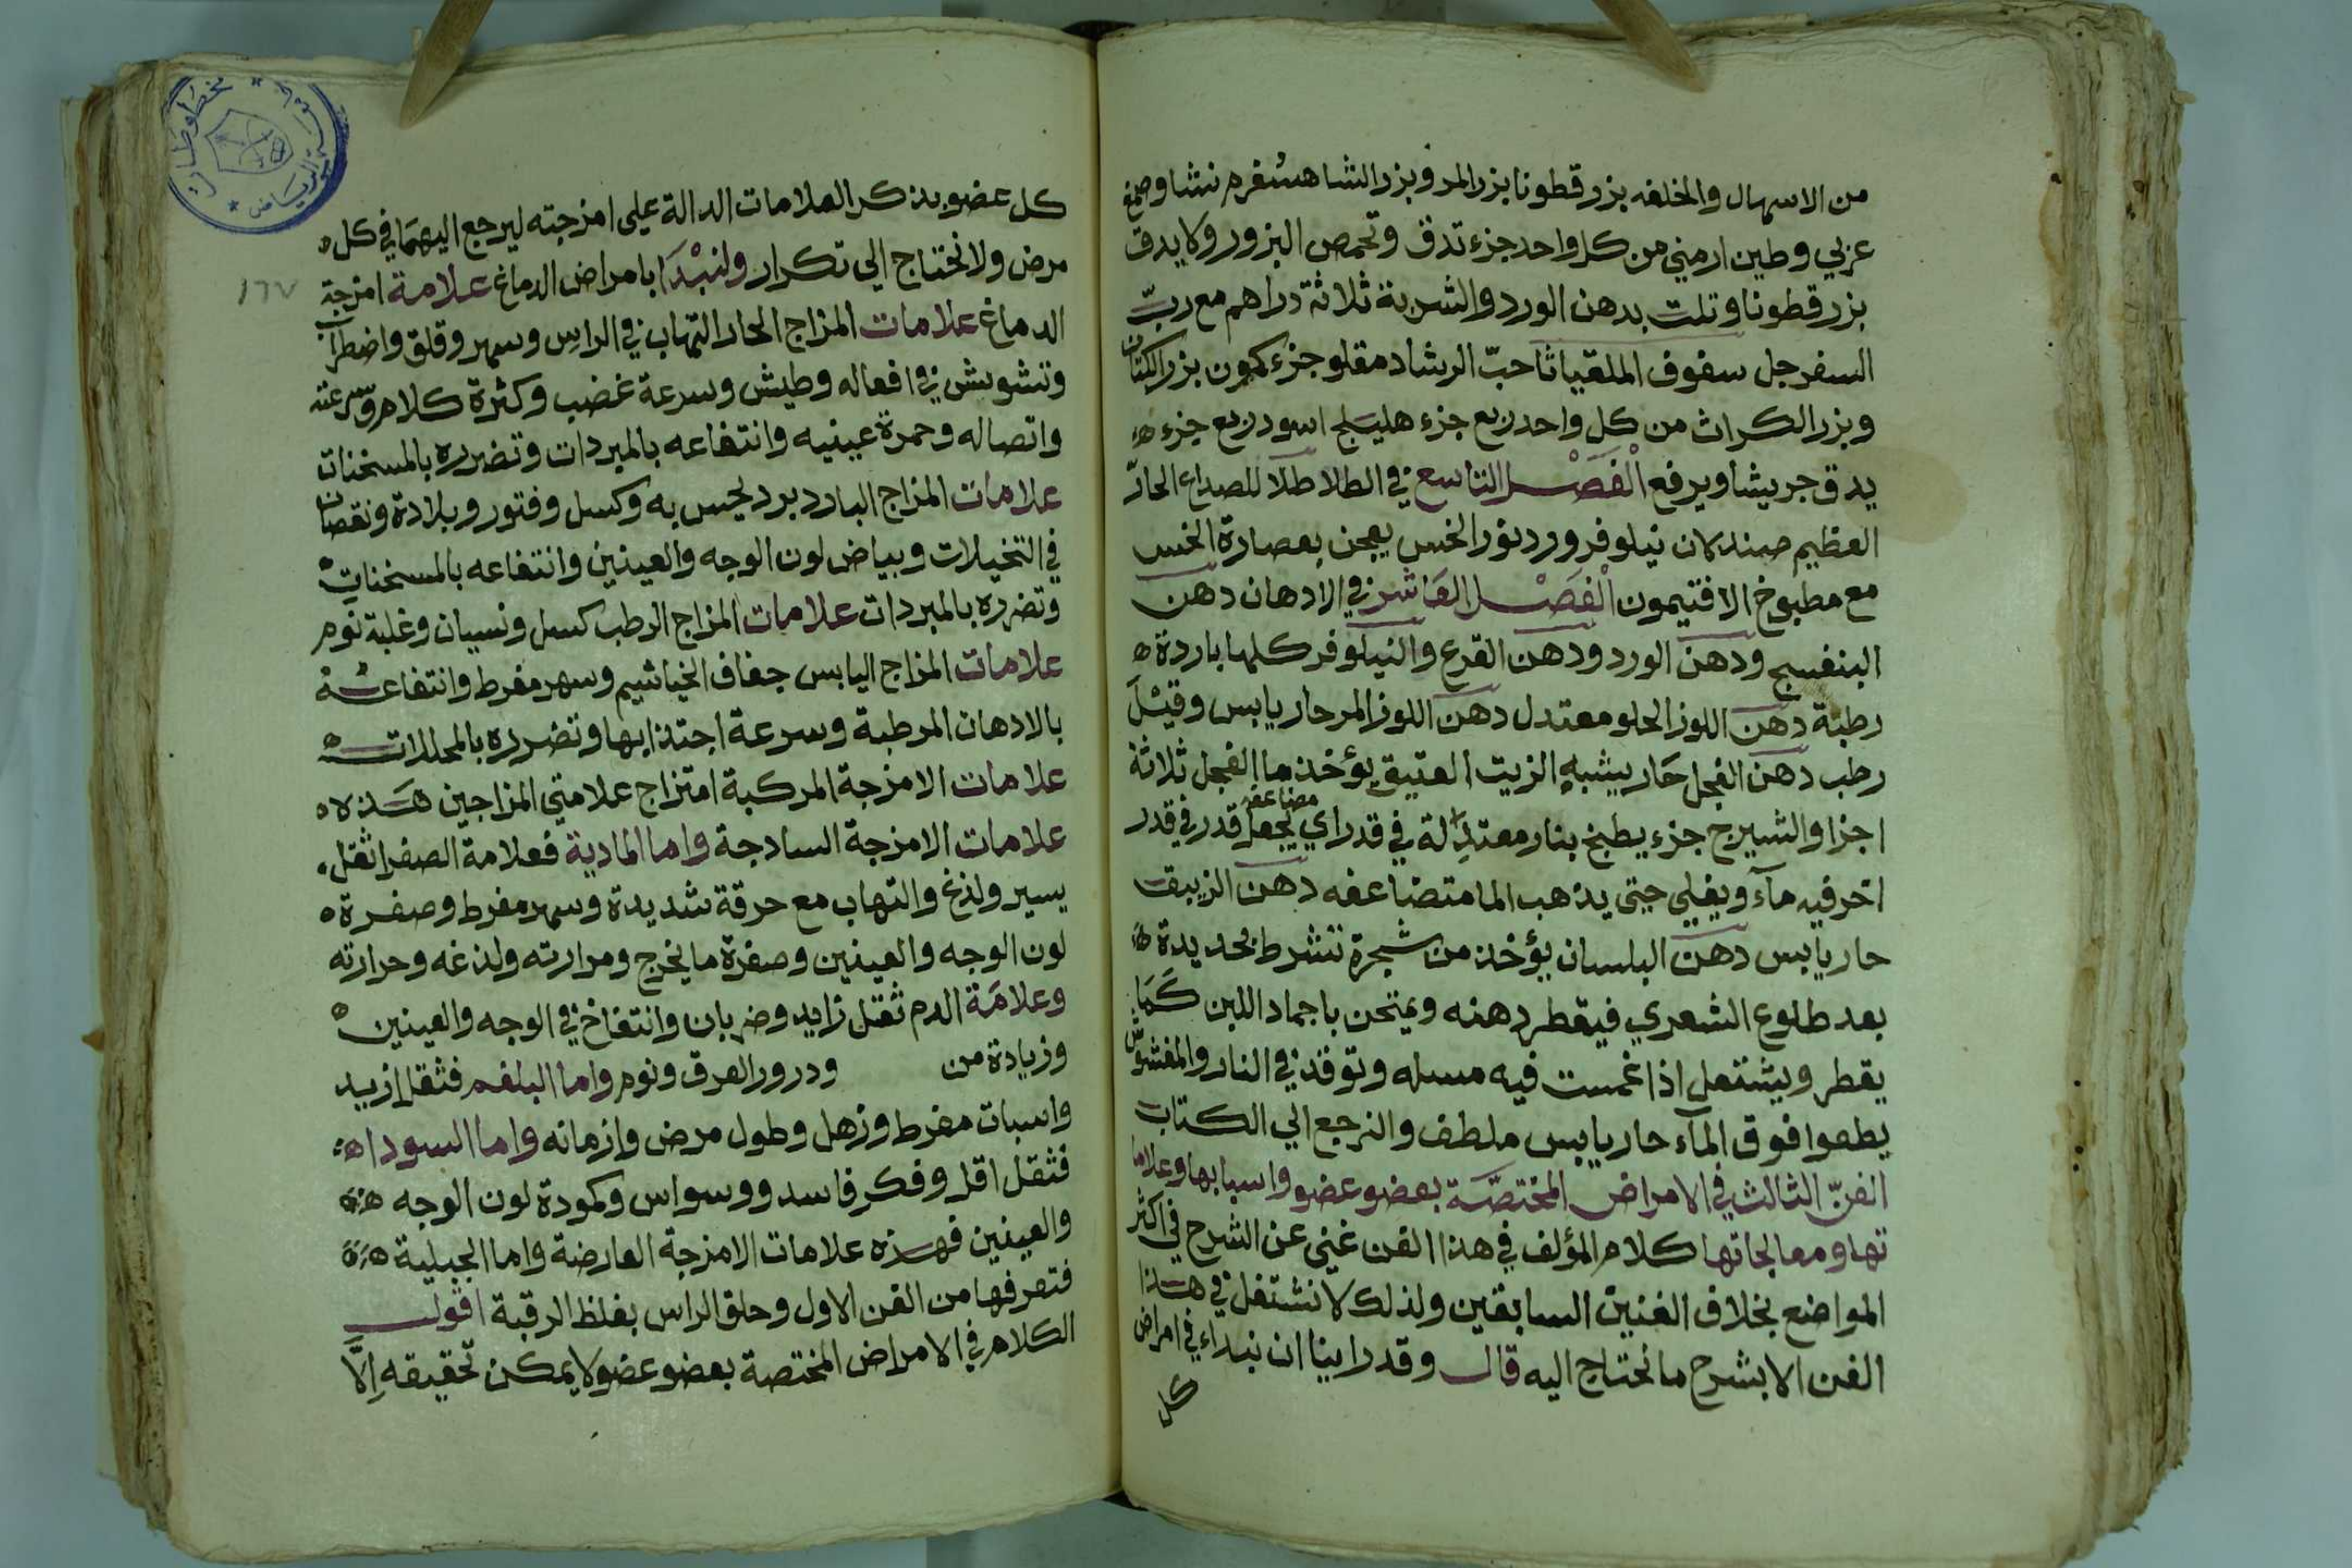 من الاسهال والمخلفه بزر قطونا بزر المر وبزر الشاهسفرم نشا وصمغ
عزبي وطين ارمني من كل واحد جزء تدق وتحمص البزور ولا يدق
بزر قطونا وتلت بدهن الورد والشربة ثلاثة دراهم مع ربّ
السفرجل سفوف الملقياثا حبّ الرشاد مقلو جزء كمون بزر الكتان
وبزر الكراث من كل واحد ربع جزء هليلج اسود ربع جزء
يدق جريشا ويرفع الفصل التاسع في الطلا طلا للصداع الحارّ
العظيم صندلان نيلوفر ورد نور الخس يعجن بعصارة الخس
مع مطبوخ الافتيمون الفصل العاشر في الادهان دهن
البنفسج ودهن الورد ودهن القرع والنيلوفر كلها باردة
رطبة دهن اللوز الحلو معتدل دهن اللوز المر حار يابس وقيل
رطب دهن الفجل حار يشبه الزيت العتيق يؤخذ ما الفجل ثلاثة
اجزا والشيرج جزء يطبخ بنار معتدلة في قدر اي يجعل قدر في قدر
مضاعفه
اخر فيه مآء ويغلي حتى يذهب الما متضاعفه دهن الزيبق
حار يابس دهن البلسان يؤخذ من شجرة تشرط بحديدة
بعد طلوع الشعري فيقطر دهنه ويمتحن باجماد اللبن كما
يقطر ويشتعل اذا غمست فيه مسله وتوقد في النار والمغشوش
يطفوا فوق المآء حار يابس ملطف والنرجع الي الكتاب
الفنّ الثالث في الامراض المختصّة بعضو عضو واسبابها وعلاما
تها ومعالجاتها كلام المؤلف في هذا الفن غني عن الشرح في اكثر
المواضع بخلاف الفنين السابقين ولذلك لا نشتغل في هذا
الفن الا بشرح ما نحتاج اليه قال وقد راينا ان نبداء في امراض
كل
كل عضو بذكر العلامات الدالة على امزجته ليرجع اليهما في كل
مرض ولا نحتاج الي تكرار ولنبدا بامراض الدماغ علامة امزجة
١٦٧
الدماغ علامات المزاج الحار التهاب في الراس وسهر وقلق واضطراب
وتشويش في افعاله وطيش وسرعة غضب وكثرة كلام وسرعته
واتصاله وحمرة عينيه وانتفاعه بالمبردات وتضرره بالمسخنات
علامات المزاج البارد برد يحس به وكسل وفتور وبلادة ونقصان
في التخيلات وبياض لون الوجه والعينين وانتفاعه بالمسخنات
وتضرره بالمبردات علامات المزاج الرطب كسل ونسيان وغلبة نوم
علامات المزاج اليابس جفاف الخياشيم وسهر مفرط وانتفاعه
بالادهان المرطبة وسرعة اجتذابها وتضرره بالمحللات
علامات الامزجة المركبة امتزاج علامتي المزاجين هذه
علامات الامزجة السادجة واما المادية فعلامة الصفرا ثقل
يسير ولذع والتهاب مع حرقة شديدة وسهر مفرط وصفرة
لون الوجه والعينين وصفرة ما يخرج ومرارته ولذعه وحرارته
وعلامة الدم ثقل زايد وضربان وانتفاخ في الوجه والعينين
وزيادة من ودرور العرق ونوم واما البلغم فثقل ازيد
واسبات مفرط وزهل وطول مرض وازمانه واما السودا
فثقل اقل وفكر فاسد ووسواس وكمودة لون الوجه
والعينين فهذه علامات الامزجة العارضة واما الجبلية
فتعرفها من الفن الاول وحلق الراس بغلظ الرقبة اقول
الكلام في الامراض المختصة بعضو عضو لا يمكن تحقيقه إلّا